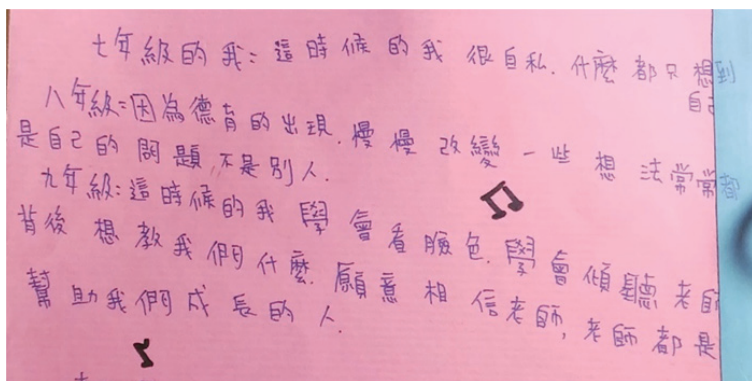 七年級的我：這時候的我很自私．什麼都只想到
自己
八年級：因為德育的出現．慢慢改變一些想法常常都
是自己的問題，不是別人．
九年級：這時候的我學會看臉色．學會傾聽老師
背後想教我們什麼．願意相信老師，老師都是
幫助我們成長的人．